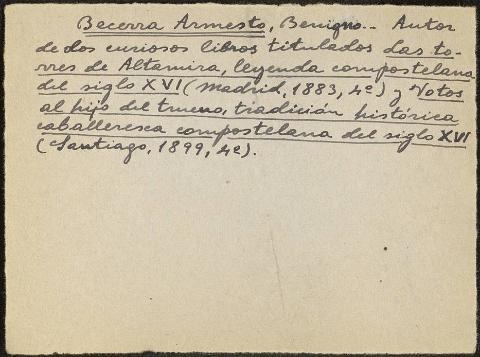 Becerra Armesto, Benigno.- Autor
de dos curiosos libros titulados Las to-
rres de Altamira, leyenda compostelana
del siglo XVI (Madrid, 1883, 4º) y Votos
al hijo del trueno, tradición histórica
caballeresca compostelana del siglo XVI
(Santiago, 1899, 4º).